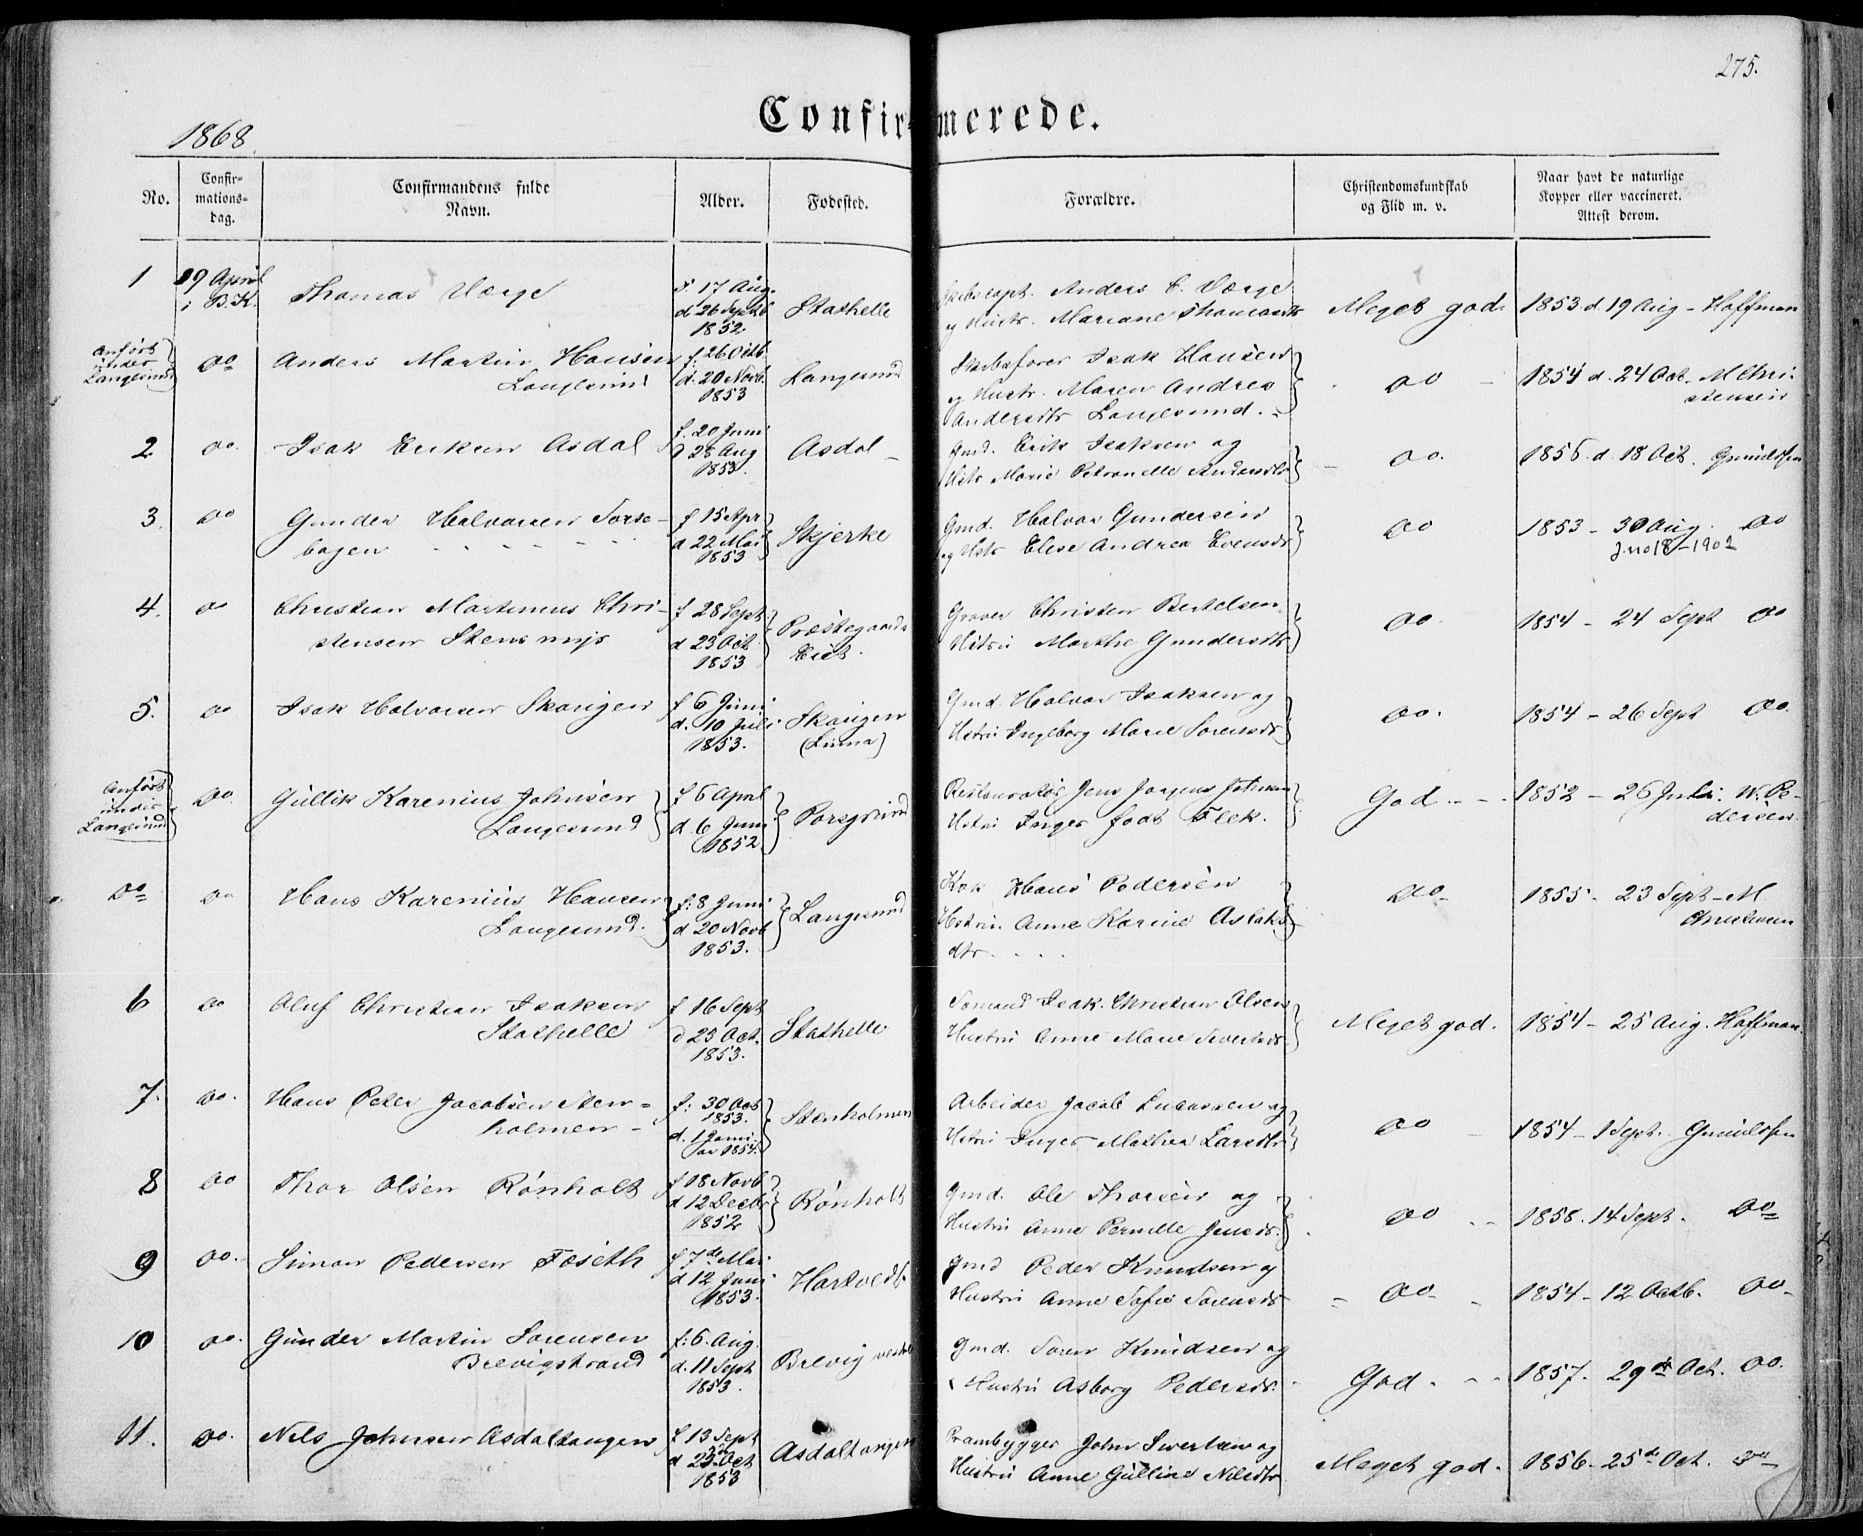 275.
1868.
Confirmerede.
No.
Confir-
mations-
dag.
Confirmandens fulde
Navn.
Alder.
Fødested.
Forældre.
Christendomskundskab
og Flid m. v.
Naar havt de naturlige
Kopper eller vaccineret.
Attest derom.
1 19 April Thomas Værge f 17 Aug. Skibscapt. Anders C. Værge
i B.K. d 26 Septb Stathelle og Hustr. Mariane Thomasdtr Meget god. 1853 d 19 Aug - Hoffman
1852
Anført
under
Langesund
do Anders Martin Hansen f. 26 Octb. Langesund Skibsfører Isak Hansen
Langesund d. 20 Novb. og Hustr. Maren Andrea do 1854 d. 24 Oct. M Chri-
1853 Andersdtr Langesund. stensen
2 do. Isak Eriksen Asdal f. 20 Juni Asdal Gmd. Erik Isaksen og do. 1856. d. 18 Oct.
d 28 Aug Hstr Marie Petronelle Andersdtr
1853.
3. do Gunder Halvorsen Torse- f 15 Apr Skjerke Gmd. Halvor Gundersen do 1853 - 30 Aug. do
bogen d 22 Mai og Hstr Elise Andrea Evensdtr
1853
4. do Christian Martinius Chri- f 28 Sept Præstegaards Graver Christen Bertelsen do. 1854 - 24 Sept do
stensen Stensmyr d 23 Oct. Eiet. Hstru Marthe Gundersdtr
1853
5. do Isak Halvorsen Skougen f 6 Juni Skougen Gmd. Halvor Isaksen og do. 1854 - 26 Sept do.
d. 10 Juli Hstru Ingeborg Marie Sørensdtr
1853.
Anført
under
Langesund
do. Gullik Karenius Johnsen f 6 April Porsgrund Restauratør Jens Jørgens Johnsen God. 1852 - 26 Juli. W. Pe-
Langesund d. 6 Juni Hstru Inger født Flek. dersen.
1852
do do Hans Karenius Hansen f: 8 Juni Langesund Kok Hans Pedersen do 1855. 23 Sept - M
Langesund. d 20 Novb Hstru. Anne Karine Aslaks Christensen
1853. dtr.
6 do Oluf Christian Isaksen f 16 Sept Stathelle Sømand Isak Christian Olsen Meget god. 1854 - 25 Aug. Hoffman.
Stathelle d 23 Oct. Hustru Anne Marie Sivertsdtr
1853.
7. do. Hans Peter Jacobsen Sten- f: 30 Oct Stenholmen Arbeider Jacob Lucassen og do 1854 - 1 Sept.
holmen 1853. Hstru Inger Mathea Larsdtr
d. 1 Janu-
ar 1854.
8 do Thor Olsen Rønholt f 18 Novb Rønholt Gmd. Ole Thorsen og do 1858. 14 Sept. do
d 12 Decbr Hustru Anne Pernille Jensdtr.
1852
9 do. Simon Pedersen Foseth f 7de Mai Hartvedt. Gmd Peder Knudsen og do 1854 - 12 Octb. do
d 12 Juni Hustru Anne Sofie Sørensdtr
1853.
10 do. Gunder Martin Sørensen f: 6. Aug. Brevig Gmd. Søren Knudsen og God. 1857. 29de Oct. do.
Brevigstrand d. 11 Sept Hustru Asborg Pedersdtr.
1853.
11. do. Nils Johnsen Asdaltangen f 13 Sept Asdaltangen Prambygger John Sivertsen og Meget god. 1856 - 25de Oct. do
d 23 Oct Hustru Anne Gulline Nilsdtr
1853